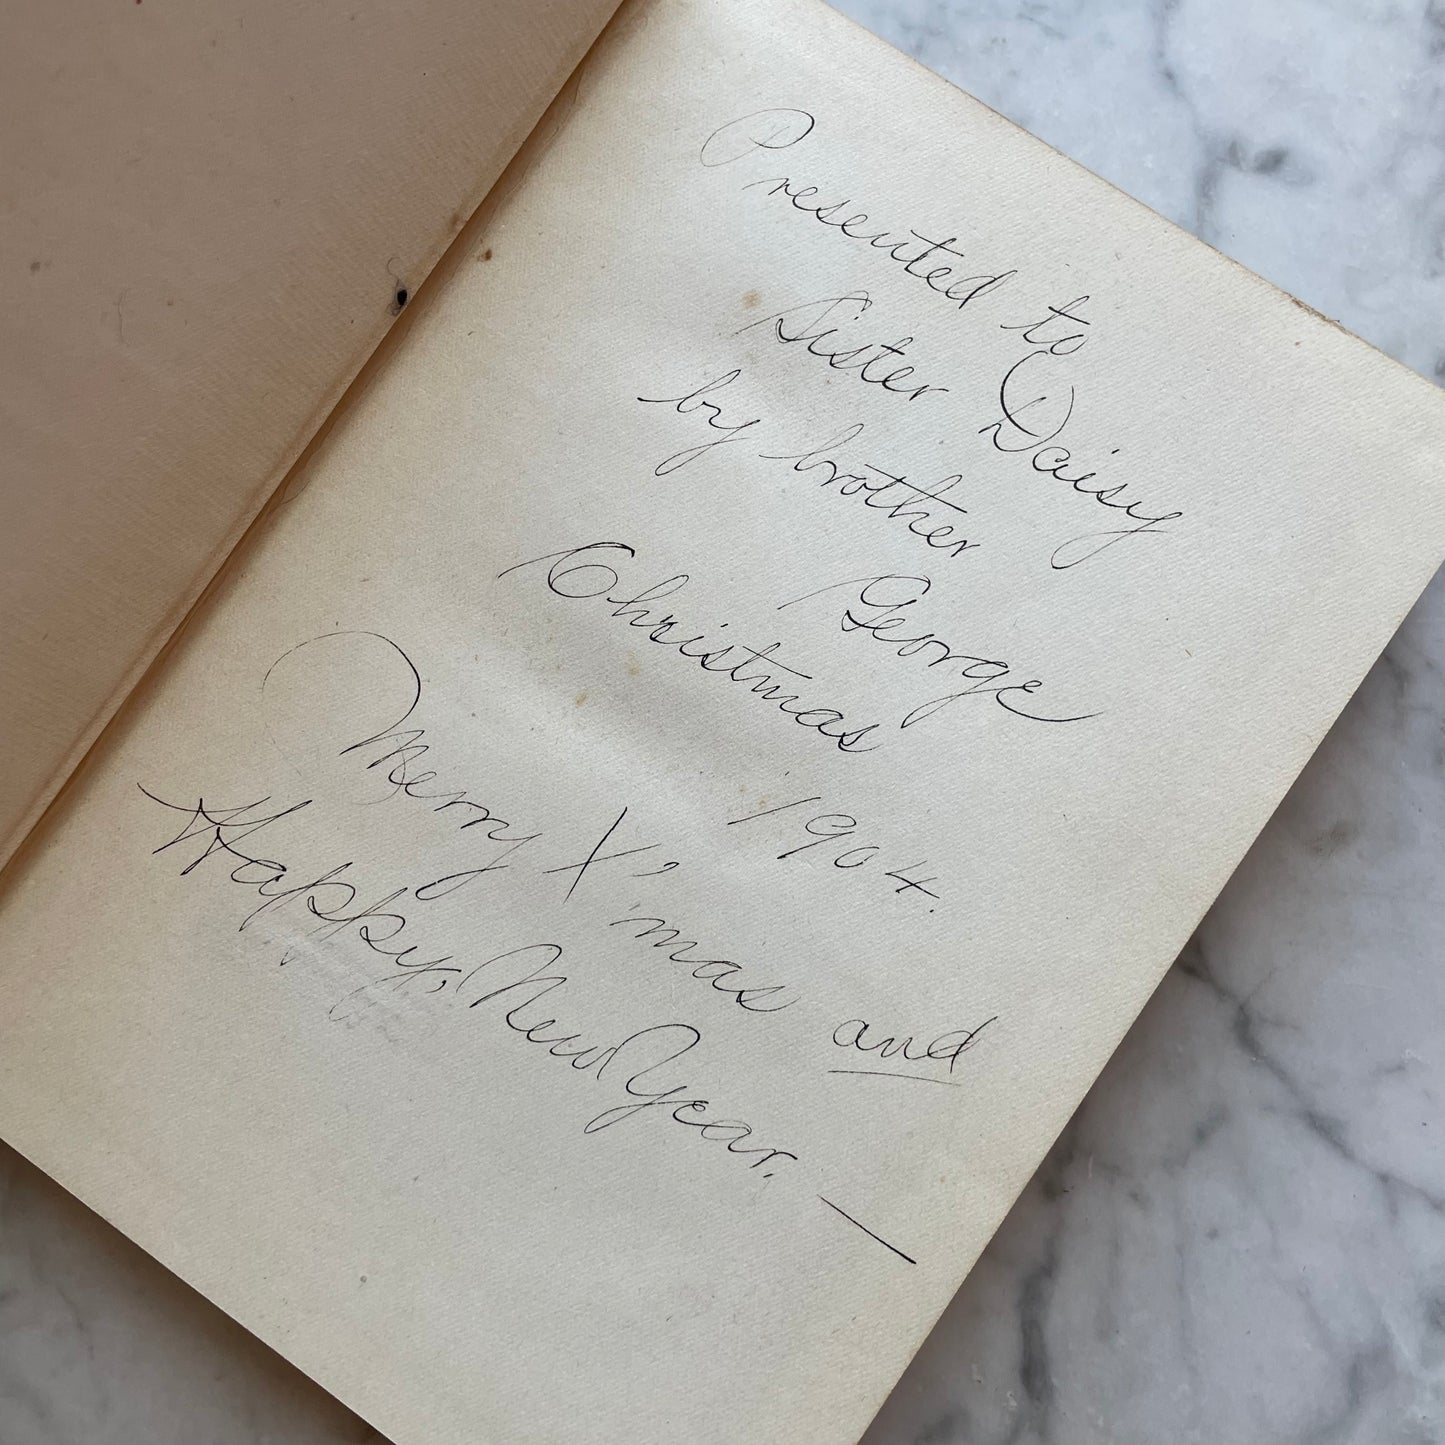 Presented to
Sister Daisy
by brother George
Christmas 1904.
Merry X'mas and
Happy, New Year. —